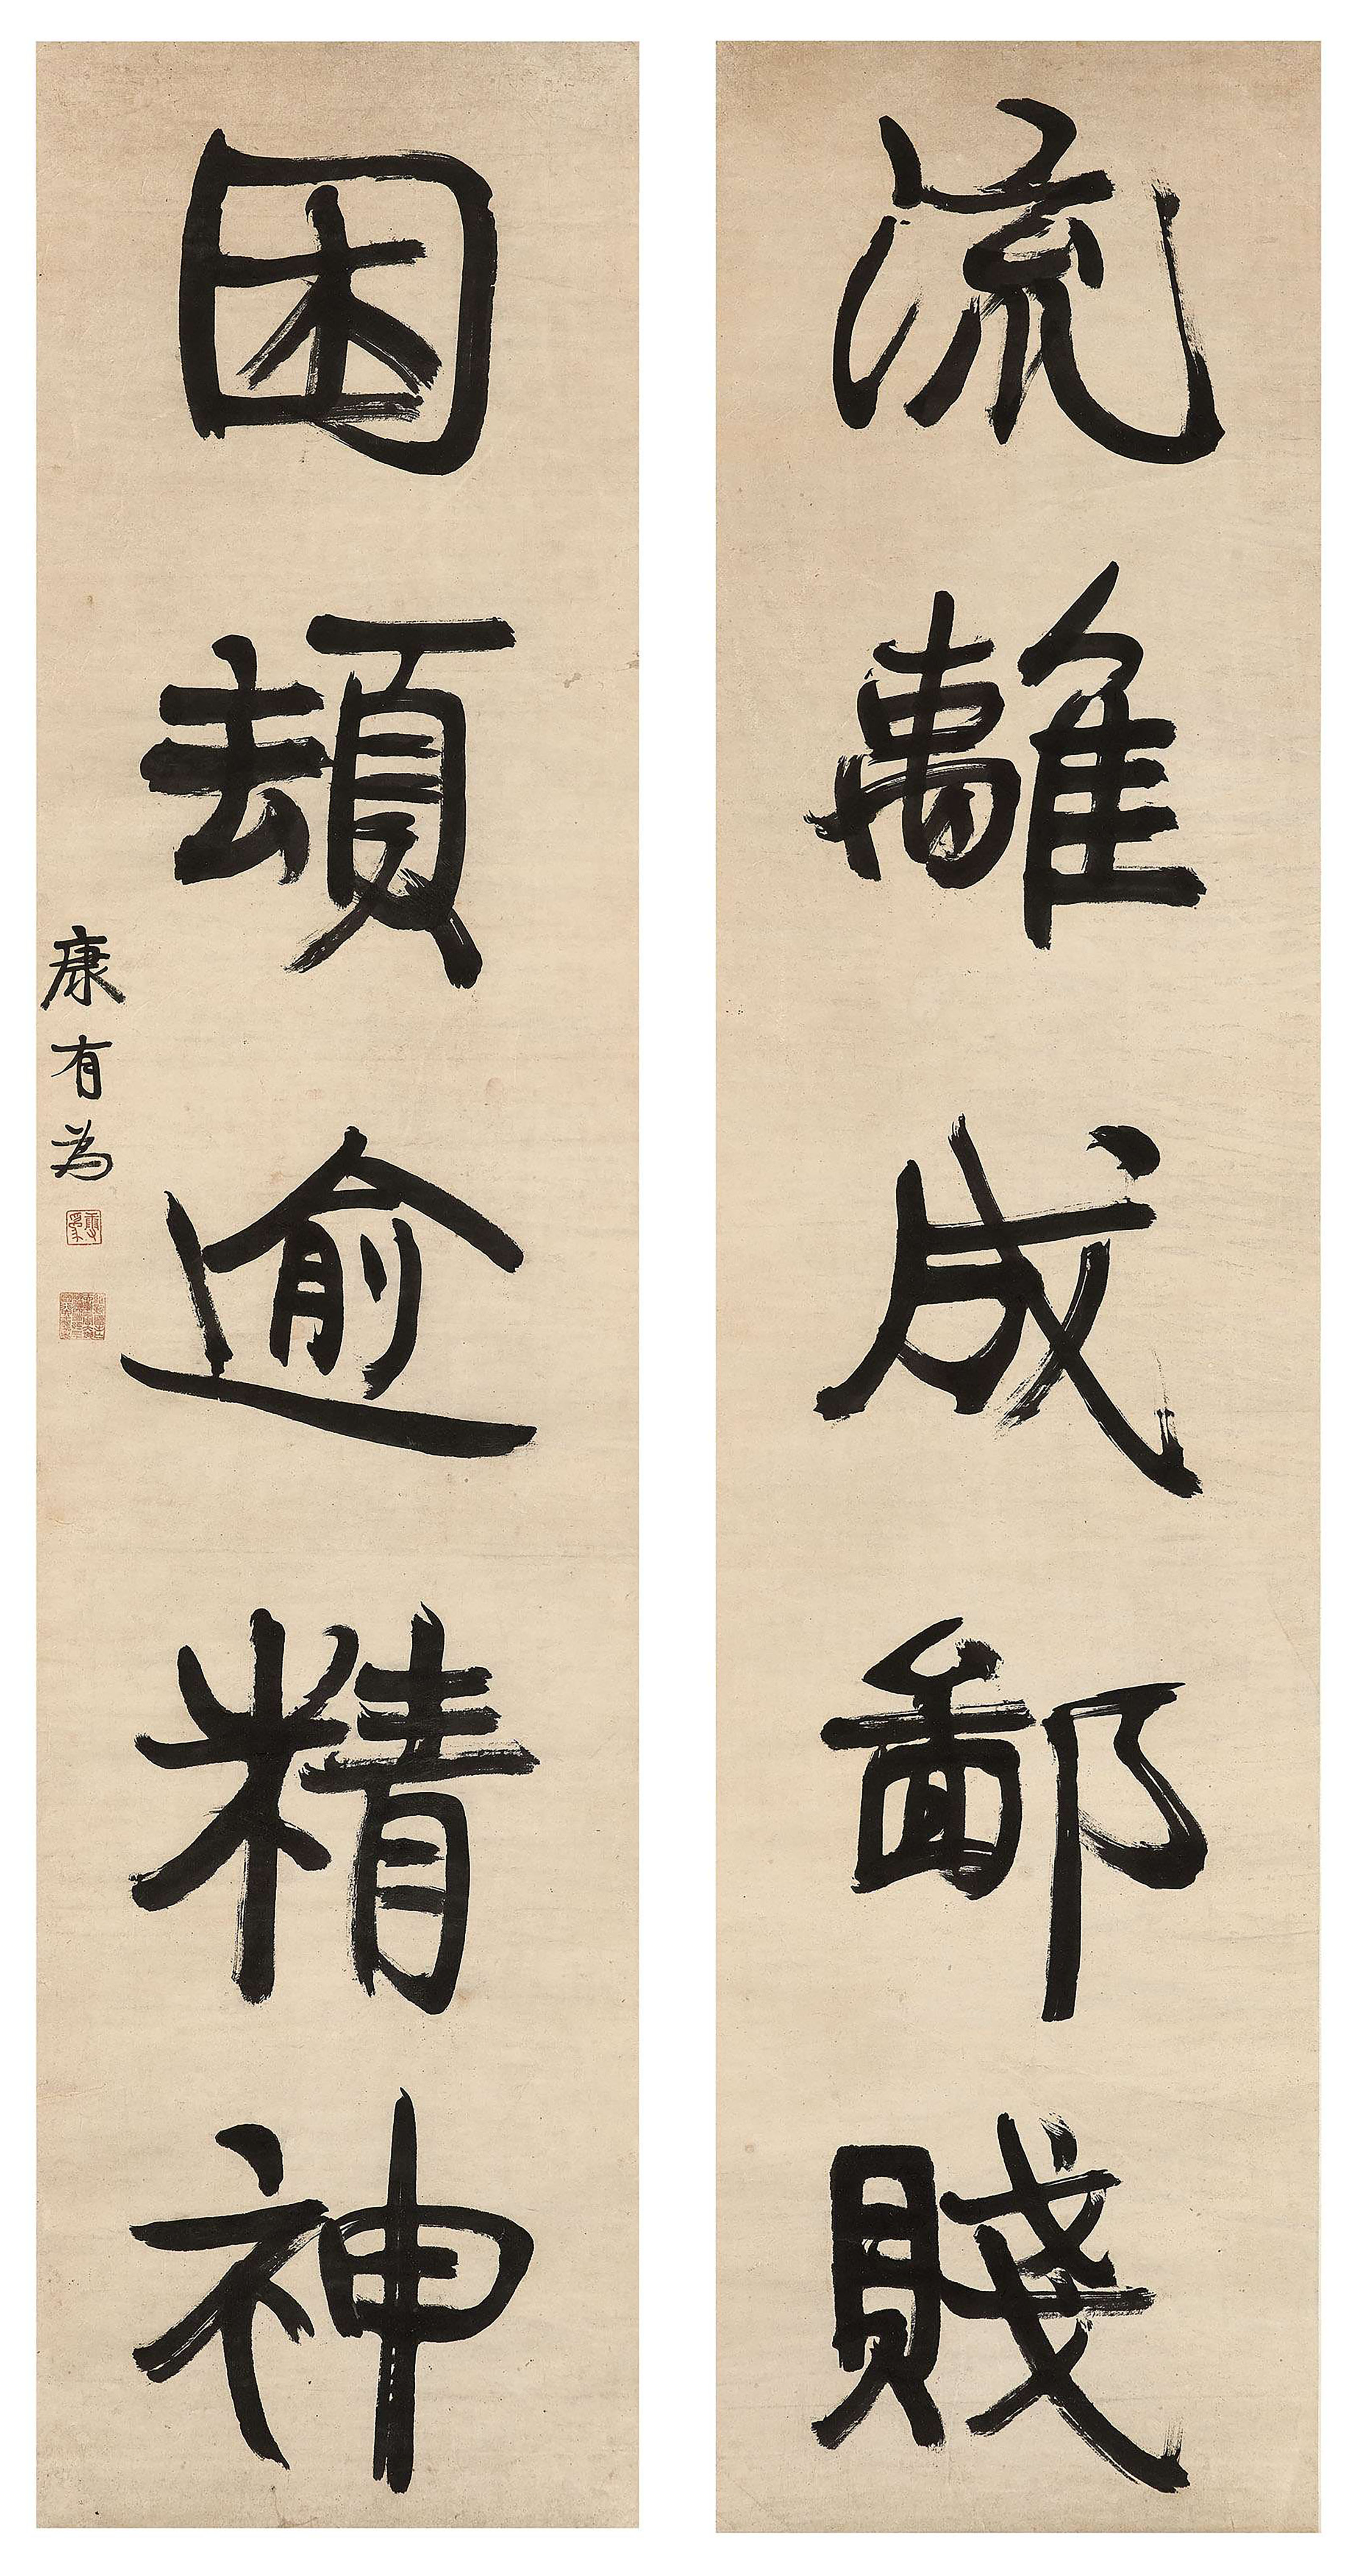 流離成鄙賤
困頓逾精神
康有為